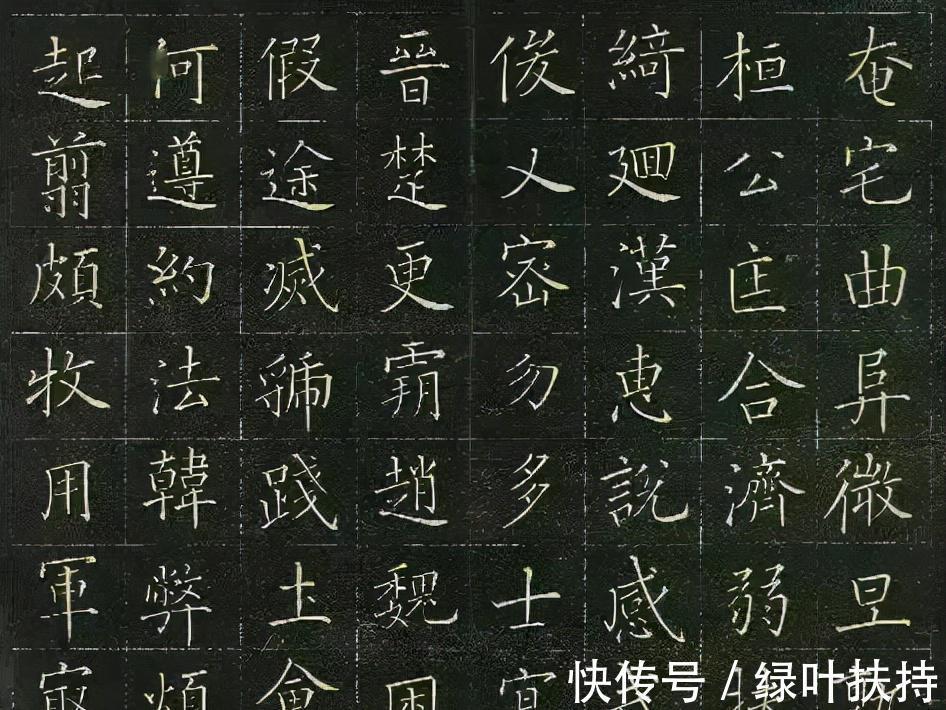 奄宅曲阜微旦
桓公匡合濟弱
綺廻漢惠說感
俊乂密勿多士寔
晉楚更霸趙魏困
假途滅虢踐土會
何遵約法韓弊煩
起翦頗牧用軍最
快传号 / 绿叶扶持